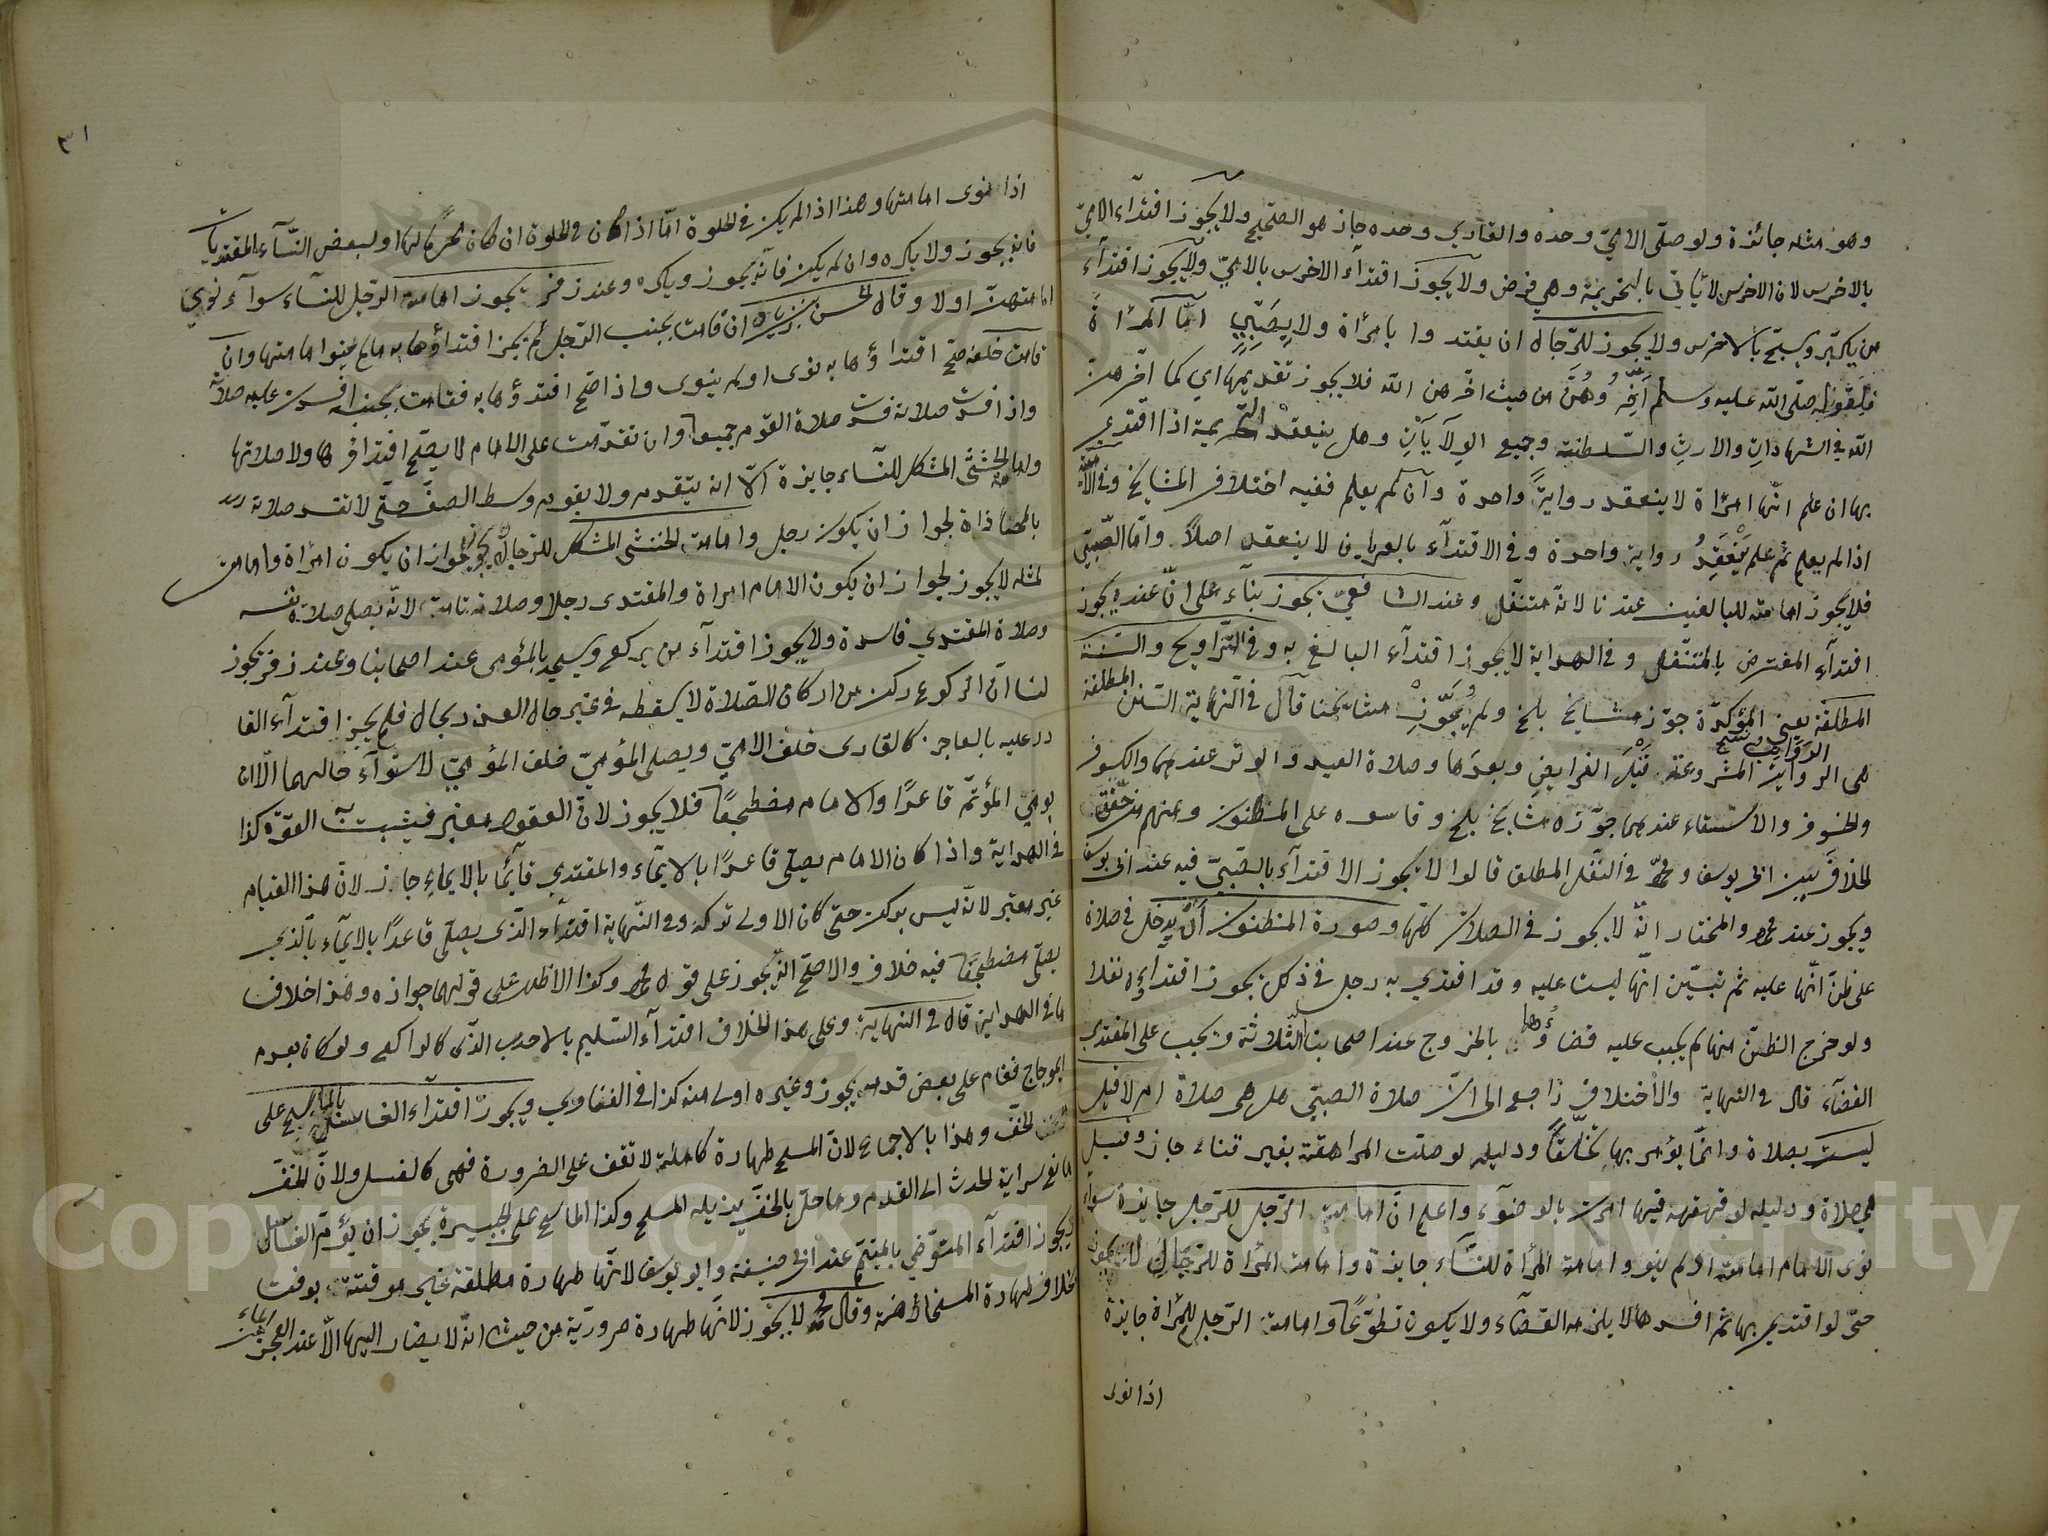 وهو مثله جائزة ولو صلّى الاميّ وحده والقاري وحده جاز هو الصّحيح ولا يجوز اقتداء الاميّ
بالاخرس لان الاخرس لا ياتي بالتحريمة وهي فرض ولا يجوز اقتداء الاخرس بالاميّ ولا يجوز اقتداء
من يكبّر ويسبّح بالاخرس ولا يجوز للرّجال ان يقتدوا بامراة ولا بصَبِيّ امّا المرأة
فلقوله صلّى الله عليه وسلم اَخِّرُوهُنَّ من حيث اخّرهن الله فلا يجوز تقديمها اي كما اخّرهنّ
الله في الشهادات والارث والسّلطنة وجميع الولايات وهل ينعقد التحريمة اذا اقتدي
بها ان علم انّها امرأة لا ينعقد رواية واحدة وان لم يعلم ففيه اختلاف المشايخ وفي
اذا لم يعلم ثم علم ينعقد رواية واحدة وفي الاقتداء بالعريان لا ينعقد اصلاً وامّا الصّبيّ
فلا يجوز امامته للبالغين عندنا لانّه متنفّل وعند الشافعيّ يجوز بناء على انّ عنده يجوز
اقتداء المفترض بالمتنفّل وفي الهداية لا يجوز اقتداء البالغ به وفي التّراويح والسّنة
المطلقة يعني المؤكّدة جوّزه مشايخ بلخ ولم يُجَوِّزْ مشايخنا قال في النّهاية السّنن المطلقة
هي الرواتب المشروعة قبل الفرايض وبعدها وصلاة العيد والوتر عندهما والكسوف
والخسوف والاستسقاء عندهما جوّزه مشايخ بلخ وقاسوه على المظنون ومنهم من حقّق
الخلاف بين ابي يوسف ومحمّد في النّفل المطلق قالوا لا يجوز الاقتداء بالصّبيّ فيه عند ابي يوسف
ويجوز عند محمد والمختار انّه لا يجوز في الصّلات كلّها وصورة المظنون أنْ يدخل في صلاة
على ظنّ انّها عليه ثم تبيّن انّها ليست عليه وقد اقتدي به رجل في ذلك يجوز اقتداؤه نفلا
ولو خرج الظّنّ منها لم يجب عليه قضاؤها بالخروج عند اصحابنا الثّلاثة ويجب على المقتدي
القضاء قال في النّهاية والاختلاف راجع الى انّ صلاة الصّبيّ هل هي صلاة ام لا قيل
ليست بصلاة وانّما يؤمر بها تخلّقاً ودليله لو صلّت المراهقة بغير قناع جاز وقيل
هي صلاة ودليله لو قهقهه فيها امرت بالوضوء واعلم انّ امامة الرّجل للرّجل جايزة سواء
نوى الامام امامته او لم ينو وامامة المرأة للنّساء جايزة وامامة المرأة للرّجال لا يجوز
حتّى لو اقتدي بها ثمّ افسدها لا يلزمه القضاء ولا يكون تطوّعًا وامامة الرّجل للمرأة جايزة
اذا نوى
٣١
اذا نوى امامتها وهذا اذا لم يكن في الخلوة امّا اذا كان في الخلوة ان كان محرمًا لها او لبعض النّساء المقتديات
فانه يجوز ولا يكره وان لم يكن فانّه يجوز ويكره وعند زفر يجوز امامة الرّجل للنّساء سواء نوى
امامتهنّ اولا وقال الحسن بن زياد ان قامت بجنب الرّجل لم يجز اقتداؤها به ما لم ينوا امامتها وان
قامت خلفه صح اقتداؤها به نوى او لم ينوى واذا صح اقتداؤها به فقامت بجنبه افسدت عليه صلاته
واذا فسدت صلاته فسدت صلاة القوم جميعا وان تقدّمت على الامام لا يصحّ اقتداؤها ولا صلاتها
وامامة الخنثى المشكل للنّساء جايزة الّا انه يتقدم ولا يقوم وسط الصفّ حتّى لا تفسد صلاته
بالمحاذاة لجواز ان يكون رجل وامامة الخنثى المشكل للرّجال لا يجوز لجواز ان يكون امرأة وامامته
لمثله لا يجوز لجواز ان يكون الامام امراة والمقتدى رجلا وصلاته تامة لانّه يصلي صلاة نفسه
وصلاة المقتدي فاسدة ولا يجوز اقتداء من يركع ويسجد بالمؤمى عند اصحابنا وعند زفر يجوز
لنا انّ الركوع ركن من اركان الصّلاة لا يسقط في غير حال العذر بحال فلم يجز اقتداء القا
در عليه بالعاجز كالقارى خلف الاميّ ويصلى المؤميّ خلف المؤميّ لاستواء حالهما الّا ان
يوميّ المؤتم قاعدًا والامام مضطجعًا فلا يجوز لانّ القعود معتبر فيثبت القوّة كذا
في الهداية واذا كان الامام يصلّي قاعدًا بالايماء والمقتدي قائما بالايماءِ جاز لانّ هذا القيام
غير معتبر لانّه ليس بركن حتّى كان الاولى تركه وفي النّهاية اقتداء الذّى يصلّي قاعدًا بالايماء بالّذي
يصلّي مضطجعًا فيه خلاف والاصحّ انّه يجوز على قول محمد وكذا الاظهر على قولهما جوازه وهذا خلاف
ما في الهداية قال في النهاية وعلى هذا الخلاف اقتداء السّليم بالاحدب الذّى كالراكع ولو كان بقدمه
اعوجاج فقام على بعض قدمه يجوز وغيره اولى منه كذا في الفتاوي ويجوز اقتداء الغاسل بالماسح على
الخفّ وهذا بالاجماع لانّ المسح طهارة كاملة لا تقف على الضرورة فهى كالغسل ولانّ الخفّ
مانع سراية الحدث الى القدم وما حلّ بالخفّ يزيله المسح وكذا الماسح على الجبيرة يجوز ان يؤمّ الغاسل
ويجوز اقتداء المتوضّي بالمتيمّم عند ابي حنيفة وابو يوسف لانّها طهارة مطلقة غير موقّتة بوقت
بخلاف طهارة المستحاضة وقال محمد لا يجوز لانّها طهارة ضروريّة من حيث انّه لا يصار اليها الّا عند العجز